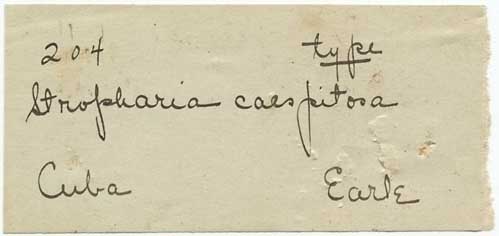 204 type
Stropharia caespitosa
Cuba Earle